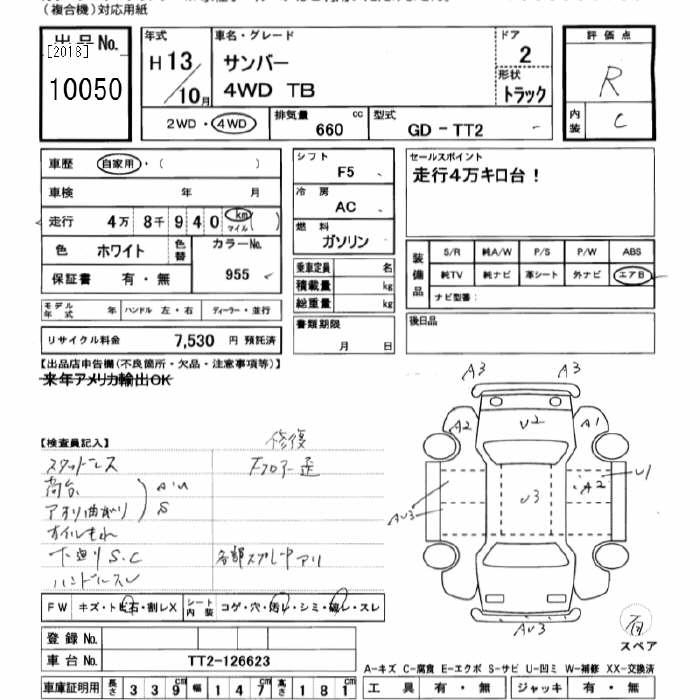 (複合機)対応用紙
出品No.
[2018]
10050
年式
H13/10月
車名・グレード
サンバー
4WD TB
ドア
2
形状
トラック
評価点
R
内装
C
2WD・4WD
排気量
660 cc
型式
GD-TT2
車歴 自家用・( )
車検 年 月
走行 4万 8千 9 4 0 km マイル ( )
色 ホワイト 色替 カラーNo. 955
保証書 有・無
モデル年式 年 ハンドル 左・右 ディーラー・並行
リサイクル料金 7,530 円 預託済
シフト
F5
冷房
AC
燃料
ガソリン
乗車定員 名
積載量 kg
総重量 kg
書類期限
月 日
セールスポイント
走行4万キロ台!
装備品
S/R 純A/W P/S P/W ABS
純TV 純ナビ 革シート 外ナビ エアB
ナビ型番:
後日品
【出品店申告欄(不良箇所・欠品・注意事項等)】
来年アメリカ輸出OK
【検査員記入】
修復
スタッドレス
フロアー歪
荷台
アオリ曲り
A・U
S
オイルもれ
下廻りS.C
各部スプレーアリ
ハンドルスレ
A3 A3
A2 U2 A1
U3 A2 U1
AU3
AU3
FW キズ・トビ石・割レX シート内装 コゲ・穴・汚レ・シミ・破レ・スレ
登録No.
車台No. TT2-126623
車庫証明用 長さ 339cm 幅 147cm 高さ 181cm
有
スペア
A-キズ C-腐食 E-エクボ S-サビ U-凹ミ W-補修 XX-交換済
工具 有・無 ジャッキ 有・無